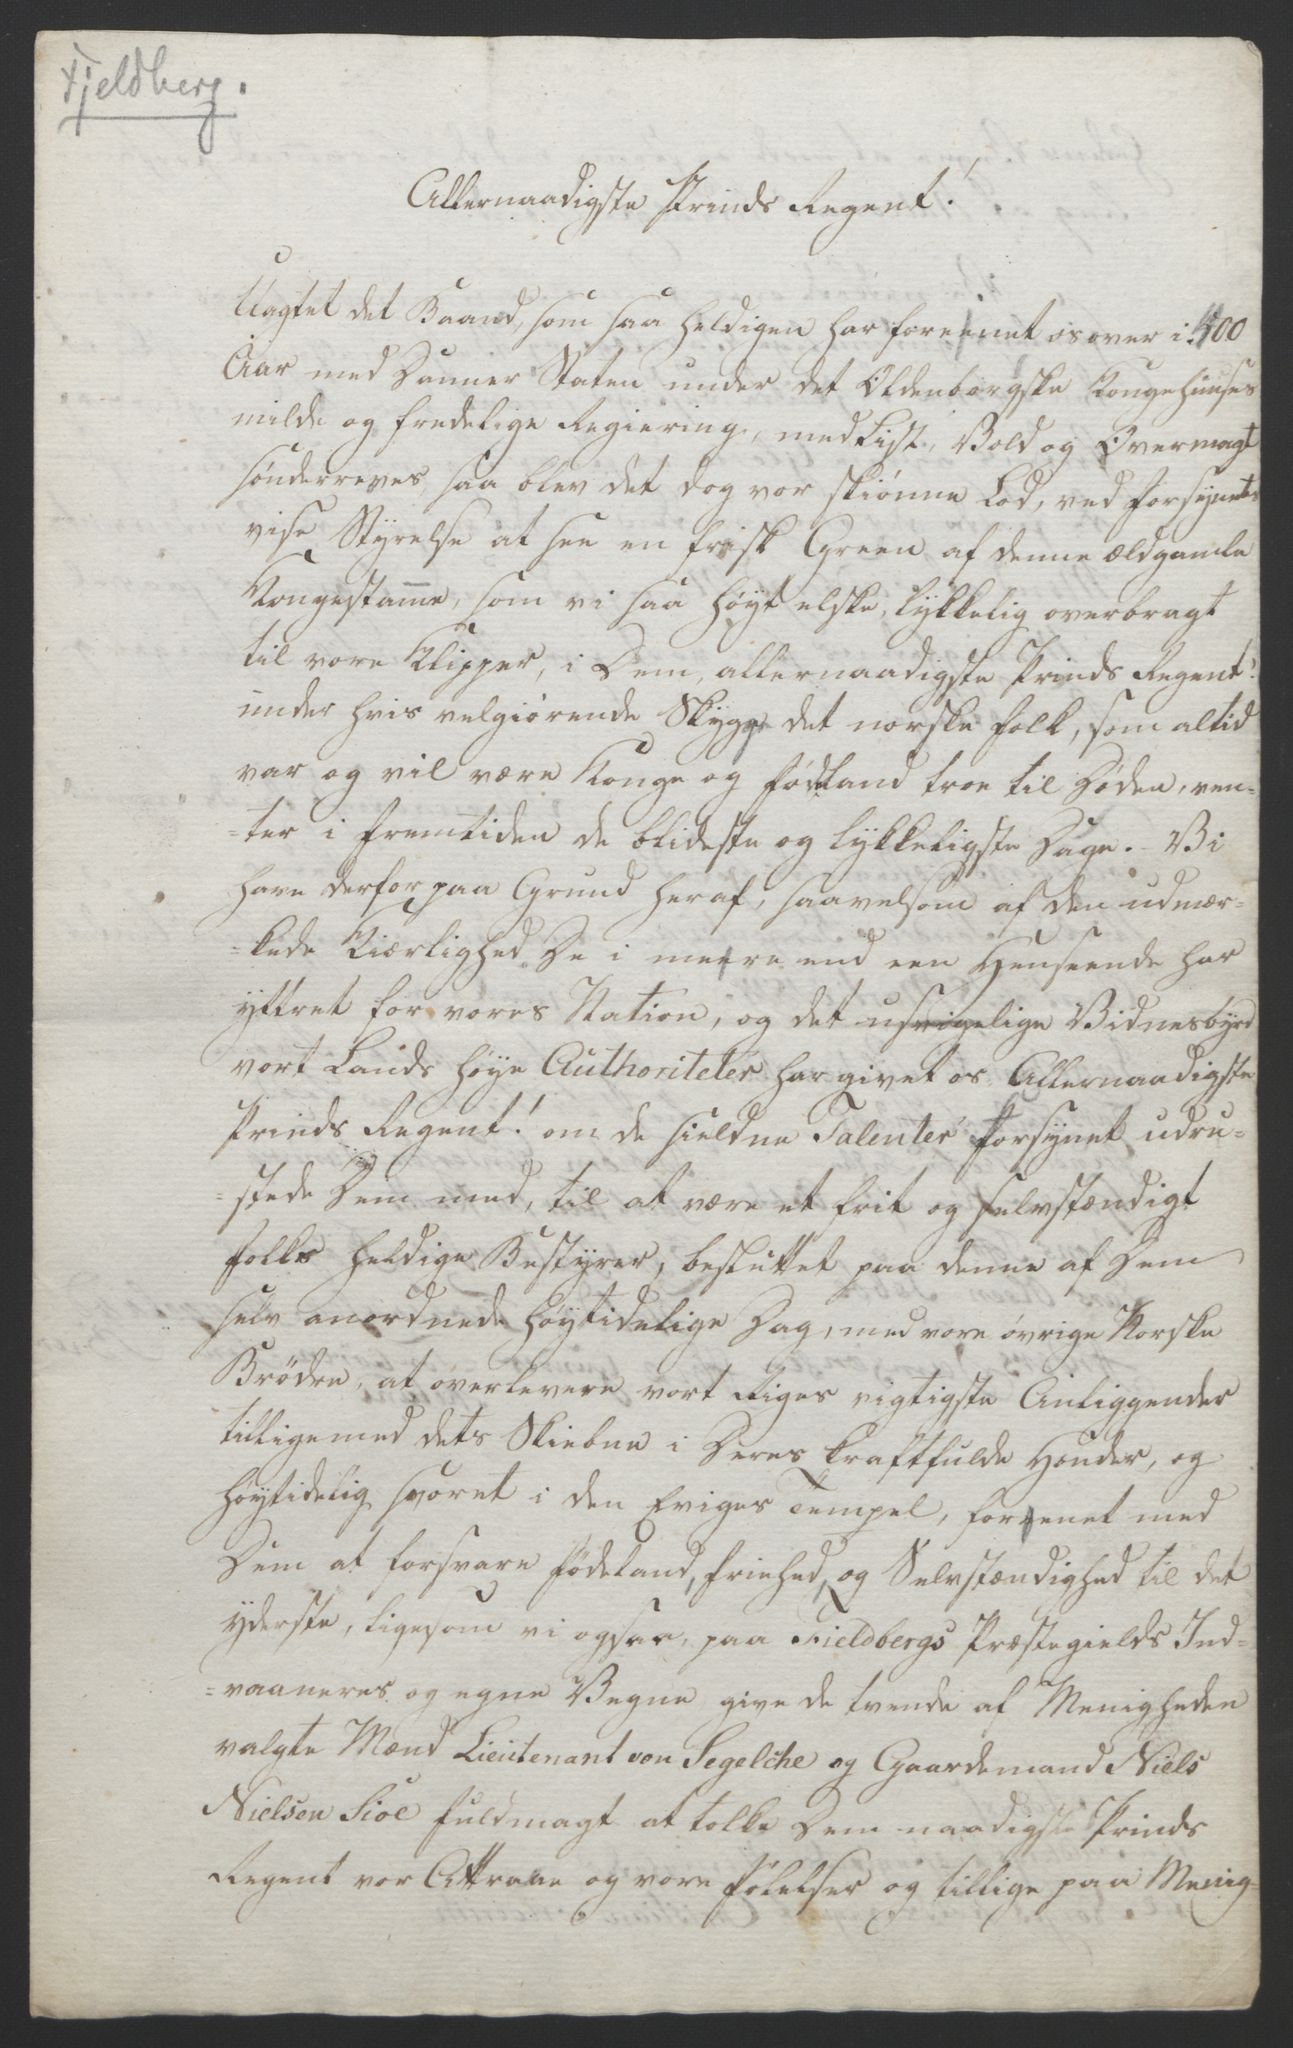 Fjeldberg.
Allernaadigste Prinds Regent!
Uagtet det Baand, som saa heldigen har foreenet os over i 400
Aar med Danner Staten under det Oldenborgske Kongehuuses
milde og fredelige Regiering, med List, Vold og Overmagt
sønderreves, saa blev det dog vor skiønne Lod, ved Forsynets
vise Styrelse at see en frisk Green af denne ældgamle
Kongestamme, som vi saa høyt elske, lykkelig overbragt
til vore Klipper, i Dem, allernaadigste Prinds Regent!
under hvis velgiørende Skygge det norske Folk, som altid
var og vil være Konge og Fødeland troe til Døden, ven-
-ter i Fremtiden de blideste og lykkeligste Dage. Vi
have derfor paa Grund heraf, saavelsom af den udmær-
-kede Kiærlighed De i meere end een Henseende har
yttret for vores Nation, og det usvigelige Vidnesbyrd
vort Lands høye Authoriteter har givet os Allernaadigste
Prinds Regent! om de sieldne Talenter Forsynet udru-
-stede Dem med, til at være et frit og selvstændigt
Folks heldige Bestyrer, besluttet paa denne af Dem
selv anordnede høytidelige Dag, med vore øvrige Norske
Brødre, at overlevere vort Riges vigtigste Anliggender
tilligemed dets Skiebne i Deres kraftfulde Hænder, og
høytidelig svoret i den Eviges Tempel, foreenet med
Dem at forsvare Fødeland, Friehed, og Selvstændighed til det
yderste, ligesom vi ogsaa, paa Fieldbergs Præstegields Ind-
=vaaneres og egne Vegne give de tvende af Menigheden
valgte Mænd Lieutenant von Segelche og Gaardemand Niels
Nielsen Sioe Fuldmagt at tolke Dem naadigste Prinds
Regent vor Attraae og vore Følelser og tillige paa Menig-